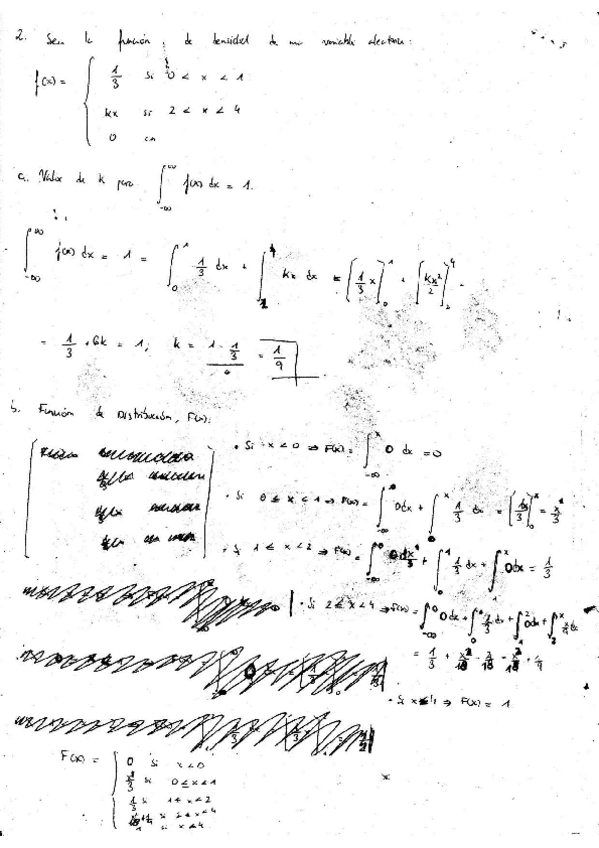 2. Sea la función de densidad de una variable aleatoria:
f(x) = { 1/3 si 0 < x < 1
kx si 2 < x < 4
0 en
a. Valor de k para ∫_{-∞}^{∞} f(x) dx = 1.
∫_{-∞}^{∞} f(x) dx = 1 = ∫_0^1 1/3 dx + ∫_2^4 kx dx = [1/3 x]_0^1 + [kx²/2]_2^4 =
= 1/3 + 6k = 1; k = (1 - 1/3)/6 = 1/9
b. Función de Distribución, F(x):
· Si x < 0 ⇒ F(x) = ∫_{-∞}^x 0 dx = 0
· Si 0 ≤ x < 1 ⇒ F(x) = ∫_{-∞}^0 0dx + ∫_0^x 1/3 dx =
· Si 1 ≤ x < 2 ⇒ F(x) = + ∫_0^1 1/3 dx + ∫ 0dx = 1/3
· Si 2 ≤ x < 4 ⇒ F(x) = ∫_{-∞}^0 0dx + ∫_0^1 1/3 dx + ∫_1^2 0dx + ∫_2^x x/9 dx
= 1/3 +
· Si ⇒ F(x) = 1
F(x) = { 0 si x < 0
si 0 ≤ x < 1
1/3 si 1 < x < 2
si 2 < x < 4
1 si x < 4